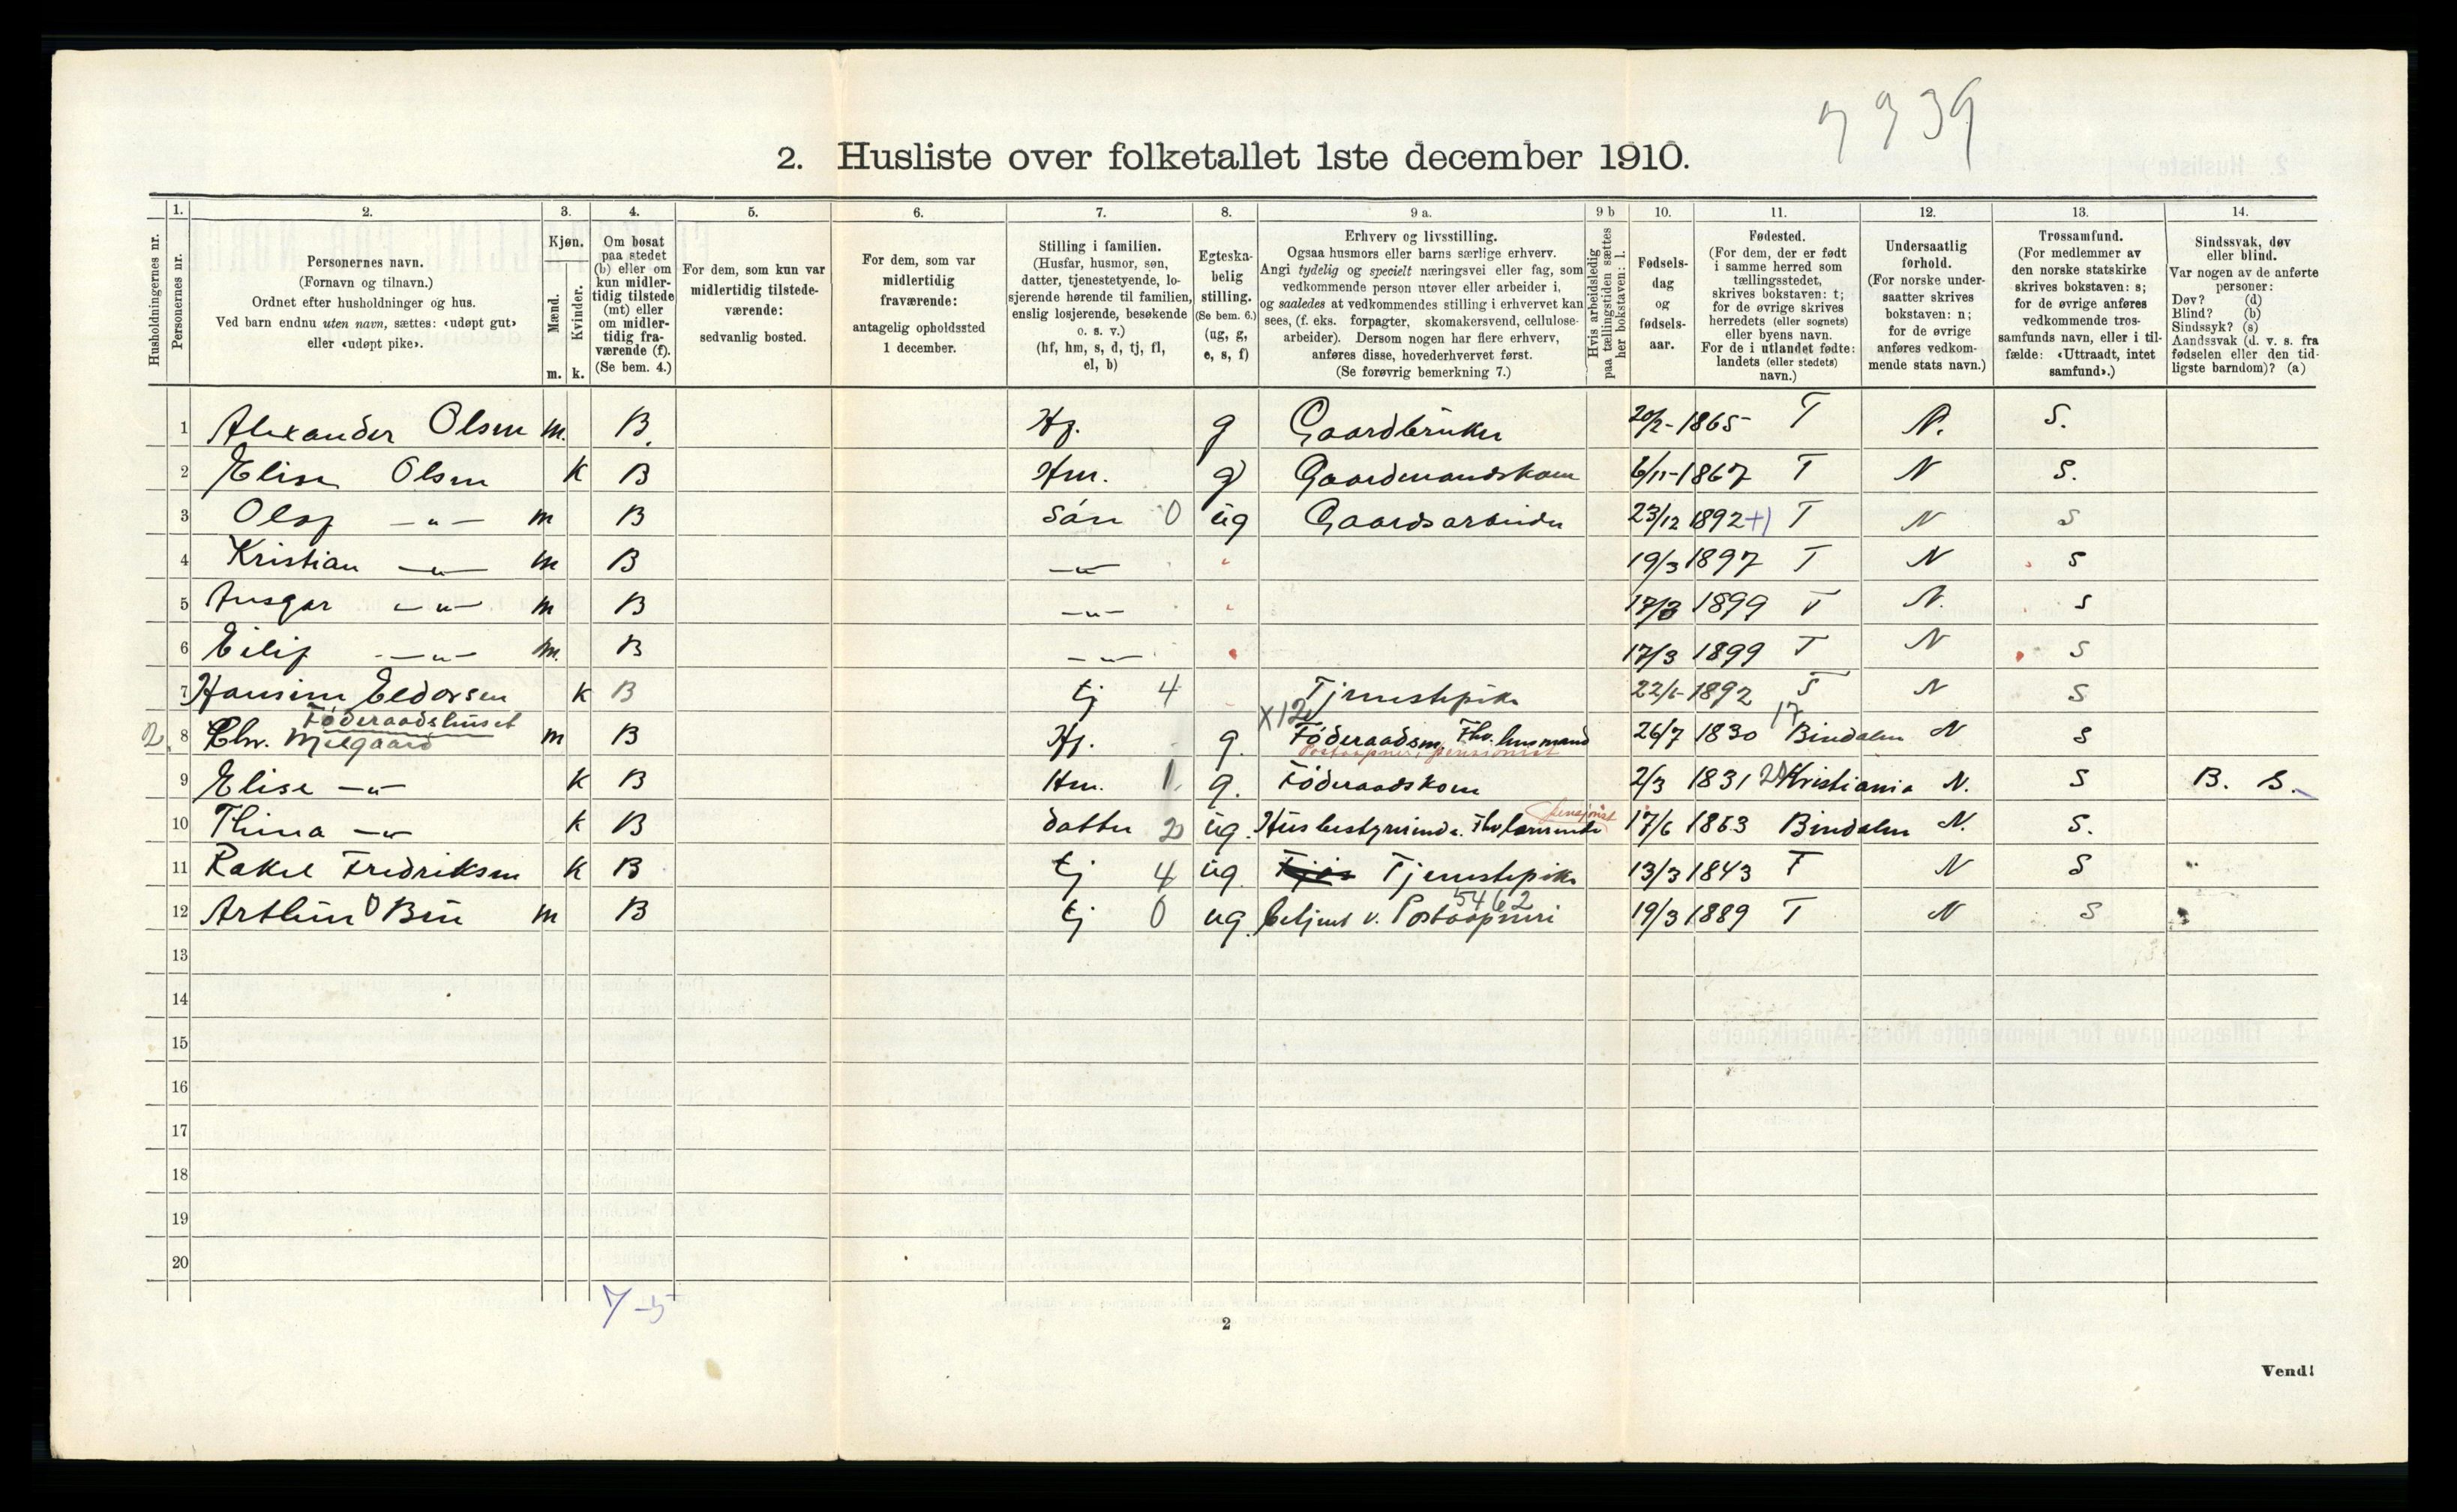 7939
2. Husliste over folketallet 1ste december 1910.
Husholdningernes nr.
1. Personernes nr.
2. Personernes navn.
(Fornavn og tilnavn.)
Ordnet efter husholdninger og hus.
Ved barn endnu uten navn, sættes: «udøpt gut»
eller «udøpt pike».
3. Kjøn.
Mænd. m.
Kvinder. k.
4. Om bosat
paa stedet
(b) eller om
kun midler-
tidig tilstede
(mt) eller
om midler-
tidig fra-
værende (f).
(Se bem. 4.)
5. For dem, som kun var
midlertidig tilstede-
værende:
sedvanlig bosted.
6. For dem, som var
midlertidig
fraværende:
antagelig opholdssted
1 december.
7. Stilling i familien.
(Husfar, husmor, søn,
datter, tjenestetyende, lo-
sjerende hørende til familien,
enslig losjerende, besøkende
o. s. v.)
(hf, hm, s, d, tj, fl,
el, b)
8. Egteska-
belig
stilling.
(Se bem. 6.)
(ug, g,
e, s, f)
9 a. Erhverv og livsstilling.
Ogsaa husmors eller barns særlige erhverv.
Angi tydelig og specielt næringsvei eller fag, som
vedkommende person utøver eller arbeider i,
og saaledes at vedkommendes stilling i erhvervet kan
sees, (f. eks. forpagter, skomakersvend, cellulose-
arbeider). Dersom nogen har flere erhverv,
anføres disse, hovederhvervet først.
(Se forøvrig bemerkning 7.)
9 b Hvis arbeidsledig
paa tællingstiden sættes
her bokstaven: l.
10. Fødsels-
dag
og
fødsels-
aar.
11. Fødested.
(For dem, der er født
i samme herred som
tællingsstedet,
skrives bokstaven: t;
for de øvrige skrives
herredets (eller sognets)
eller byens navn.
For de i utlandet fødte:
landets (eller stedets)
navn.)
12. Undersaatlig
forhold.
(For norske under-
saatter skrives
bokstaven: n;
for de øvrige
anføres vedkom-
mende stats navn.)
13. Trossamfund.
(For medlemmer av
den norske statskirke
skrives bokstaven: s;
for de øvrige anføres
vedkommende tros-
samfunds navn, eller i til-
fælde: «Uttraadt, intet
samfund».)
14. Sindssvak, døv
eller blind.
Var nogen av de anførte
personer:
Døv? (d)
Blind? (b)
Sindssyk? (s)
Aandssvak (d. v. s. fra
fødselen eller den tid-
ligste barndom)? (a)
1 Alexander Olsen m. B. Hf. g Gaardbruker 20/2- 1865 T N. S.
2 Elise Olsen k B Hm. g Gaardmandskone 6/11-1867 T N S.
3 Olaf —"— m B Sön 0 ug Gaardsarbeider 23/12 1892 +1 T N S
4 Kristian —"— m B —"— 19/3 1897 T N S
5 Ansgar —"— m B —"— 17/3 1899 T N. S
6 Eilif —"— m. B —"— 17/3 1899 T N S
7 Hansine Eldorsen k B tj 4 Tjenestepike 22/6 1892 T N S
Föderaadshuset X12 17
2. 8 Chr. Melgaard m B Hf. g. Föderaadsm, Fhv. husmand 26/7 1830 Bindalen N S
Postaapner, pensionist
9 Elise —"— k B Hm. 1 g. Föderaadskone 2/3 1831 20 Kristiania N. S B. S.
pensionist
10 Thina —"— k B datter 2 ug. Husbestyrerinde. Fhv lærerinde 17/6 1863 Bindalen N. S.
11 Rakel Fredriksen k B tj 4 ug. Tjenestepike 13/3 1843 T N S
5462
12 Arthur Bru m B tj 0 ug. betjent v. Postaapneri 19/3 1889 T N S
13
14
15
16
17
18
19
20
7-5
2
Vend!